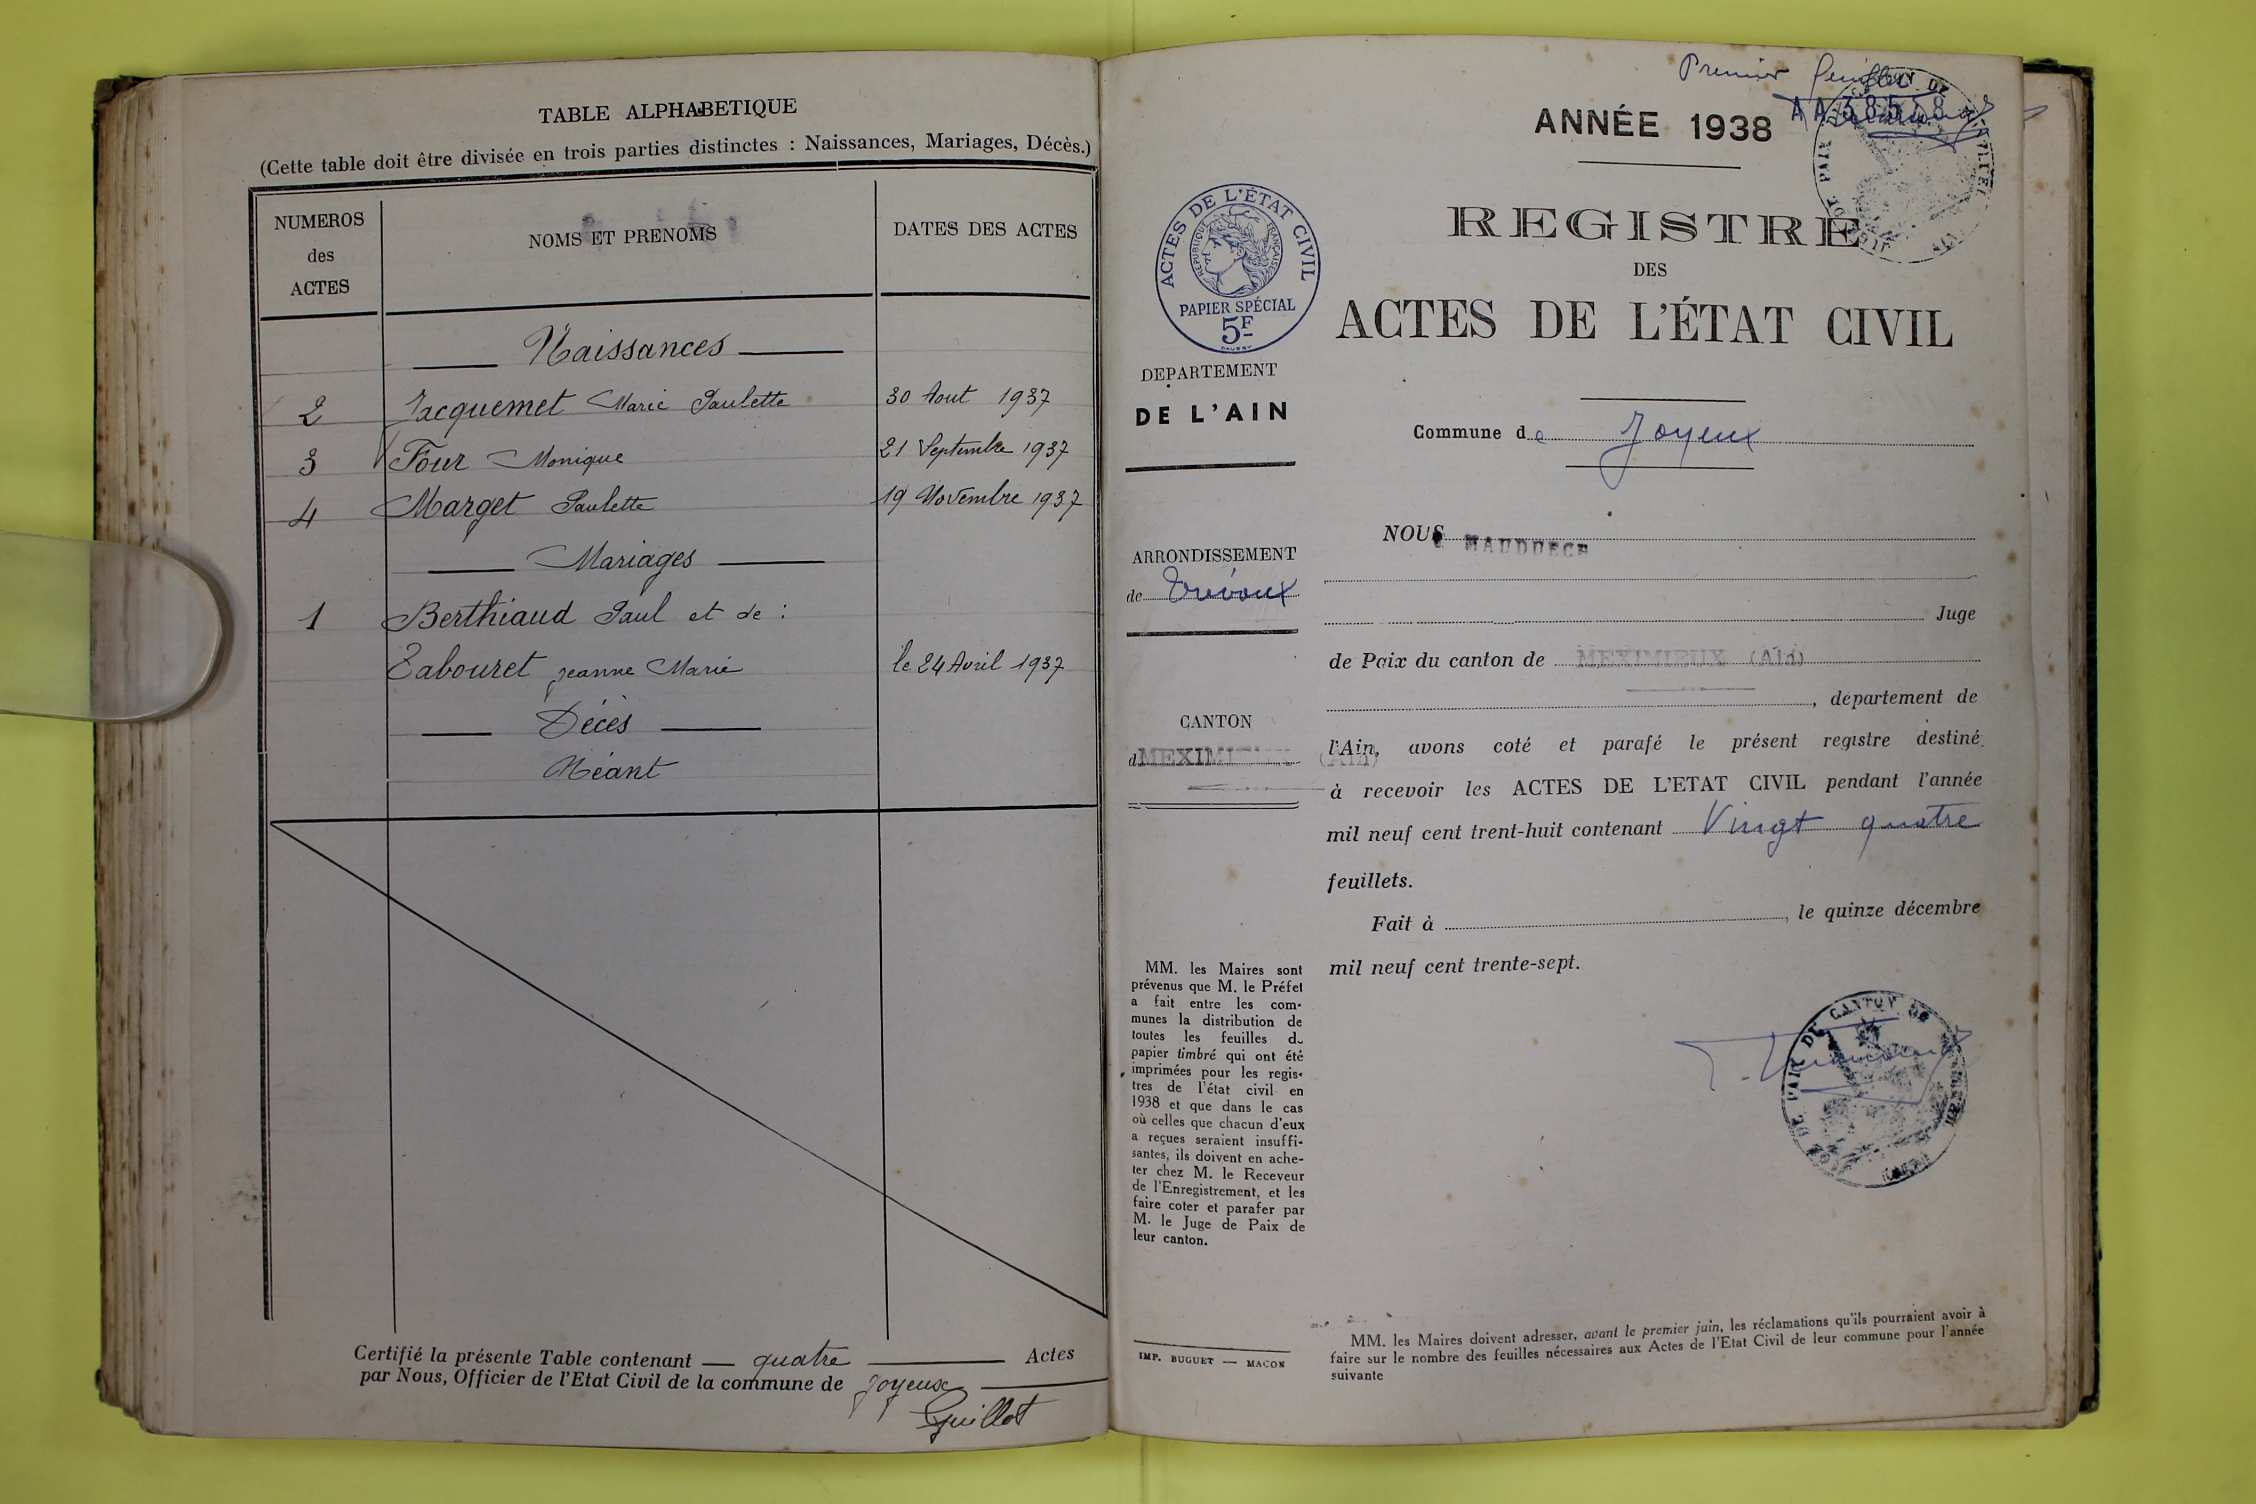 TABLE ALPHABETIQUE
(Cette table doit être divisée en trois parties distinctes : Naissances, Mariages, Décès.)
NUMEROS
des
ACTES
NOMS ET PRENOMS
DATES DES ACTES
Naissances
2 Jacquemet Marie Paulette 30 Aout 1937
3 Four Monique 21 Septembre 1937
4 Marget Paulette 19 Novembre 1937
Mariages
1 Berthiaud Paul et de :
Tabouret Jeanne Marie le 24 Avril 1937
Décès
Néant
Certifié la présente Table contenant quatre Actes
par Nous, Officier de l'Etat Civil de la commune de Joyeux
Guillot
Premier feuillet
ANNÉE 1938
ACTES DE L'ÉTAT CIVIL
RÉPUBLIQUE FRANÇAISE
PAPIER SPÉCIAL
5F
DEPARTEMENT
DE L'AIN
ARRONDISSEMENT
de Trévoux
CANTON
d MEXIMIEUX (Ain)
MM. les Maires sont
prévenus que M. le Préfet
a fait entre les com-
munes la distribution de
toutes les feuilles de
papier timbré qui ont été
imprimées pour les regis-
tres de l'état civil en
1938 et que dans le cas
où celles que chacun d'eux
a reçues seraient insuffi-
santes, ils doivent en ache-
ter chez M. le Receveur
de l'Enregistrement, et les
faire coter et parafer par
M. le Juge de Paix de
leur canton.
IMP. BUGUET — MACON
REGISTRE
DES
ACTES DE L'ÉTAT CIVIL
Commune de Joyeux
NOUS
Juge
de Paix du canton de MEXIMIEUX (Ain)
, département de
l'Ain, avons coté et parafé le présent registre destiné
à recevoir les ACTES DE L'ETAT CIVIL pendant l'année
mil neuf cent trent-huit contenant Vingt quatre
feuillets.
Fait à , le quinze décembre
mil neuf cent trente-sept.
DE PAIX DU CANTON DE
MM. les Maires doivent adresser, avant le premier juin, les réclamations qu'ils pourraient avoir à
faire sur le nombre des feuilles nécessaires aux Actes de l'Etat Civil de leur commune pour l'année
suivante